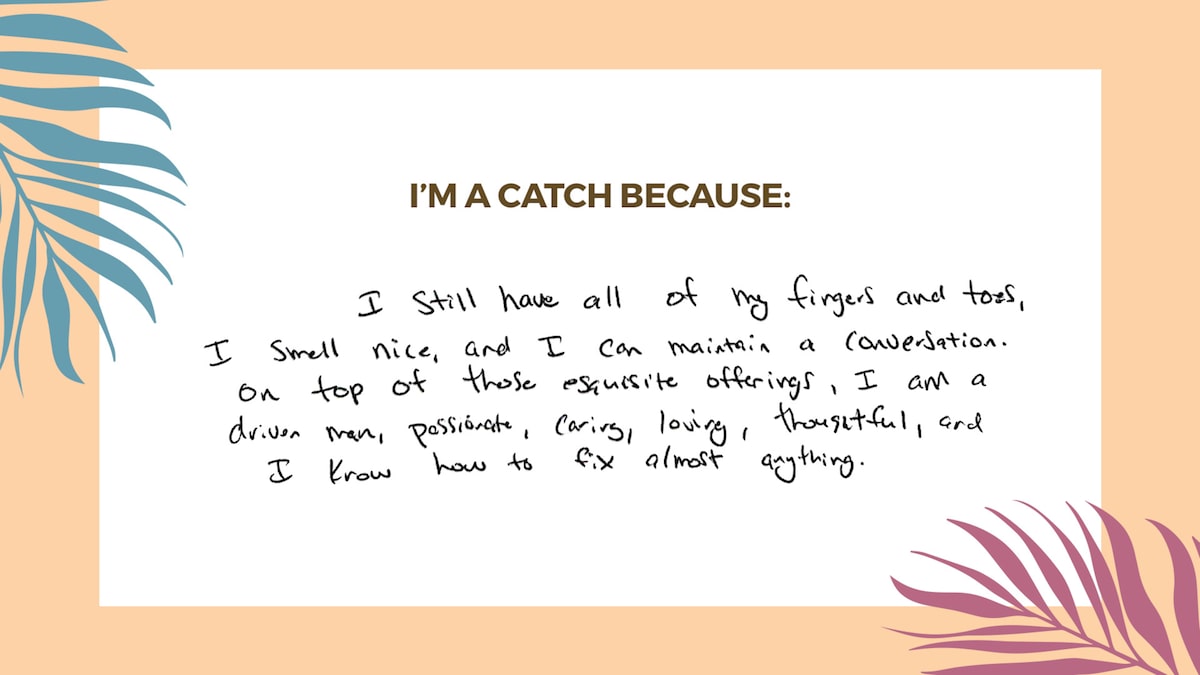 I'M A CATCH BECAUSE:
I still have all of my fingers and toes,
I smell nice, and I can maintain a conversation.
on top of those esquisite offerings, I am a
driven man, passionate, caring, loving, thoughtful, and
I know how to fix almost anything.